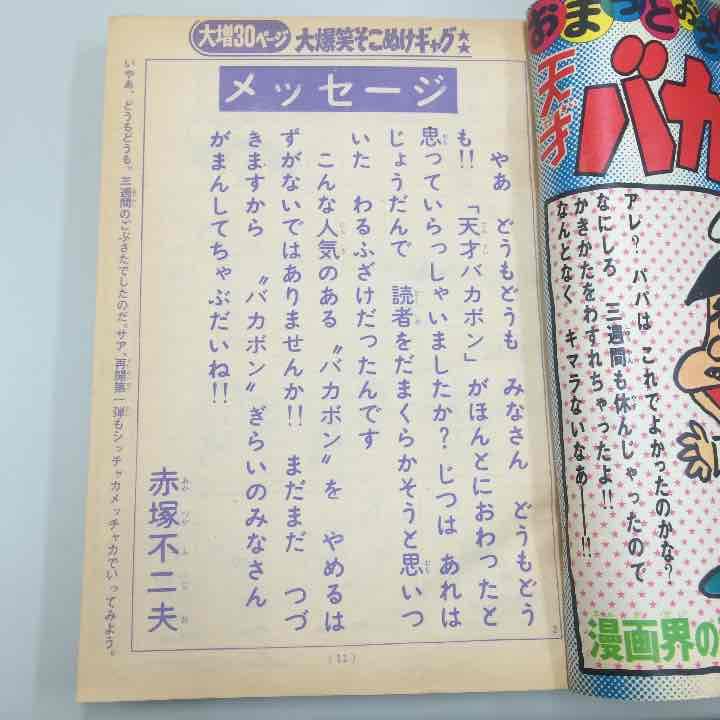 大増30ページ 大爆笑そこぬけギャグ★★
メッセージ
やあ　どうもどうも　みなさん　どうもどう
も!!　「天才バカボン」がほんとにおわったと
思っていらっしゃいましたか？じつは　あれは
じょうだんで　読者をだまくらかそうと思いつ
いた　わるふざけだったんです
こんな人気のある〝バカボン〟を　やめるは
ずがないではありませんか!!　まだまだ　つづ
きますから　〝バカボン〟ぎらいのみなさん
がまんしてちゃぶだいね!!
赤塚不二夫
いやあ、どうもどうも。三週間のごぶさたでしたのだ。サア、再開第一弾もシッチャカメッチャカでいってみよう。
(11)
2
天才バカ
アレ？　パパは　これでよかったのかな？
なにしろ　三週間も休んじゃったので
かきかたをわすれちゃったよ!!
なんとなく　キマラないなあ――!!
漫画界の